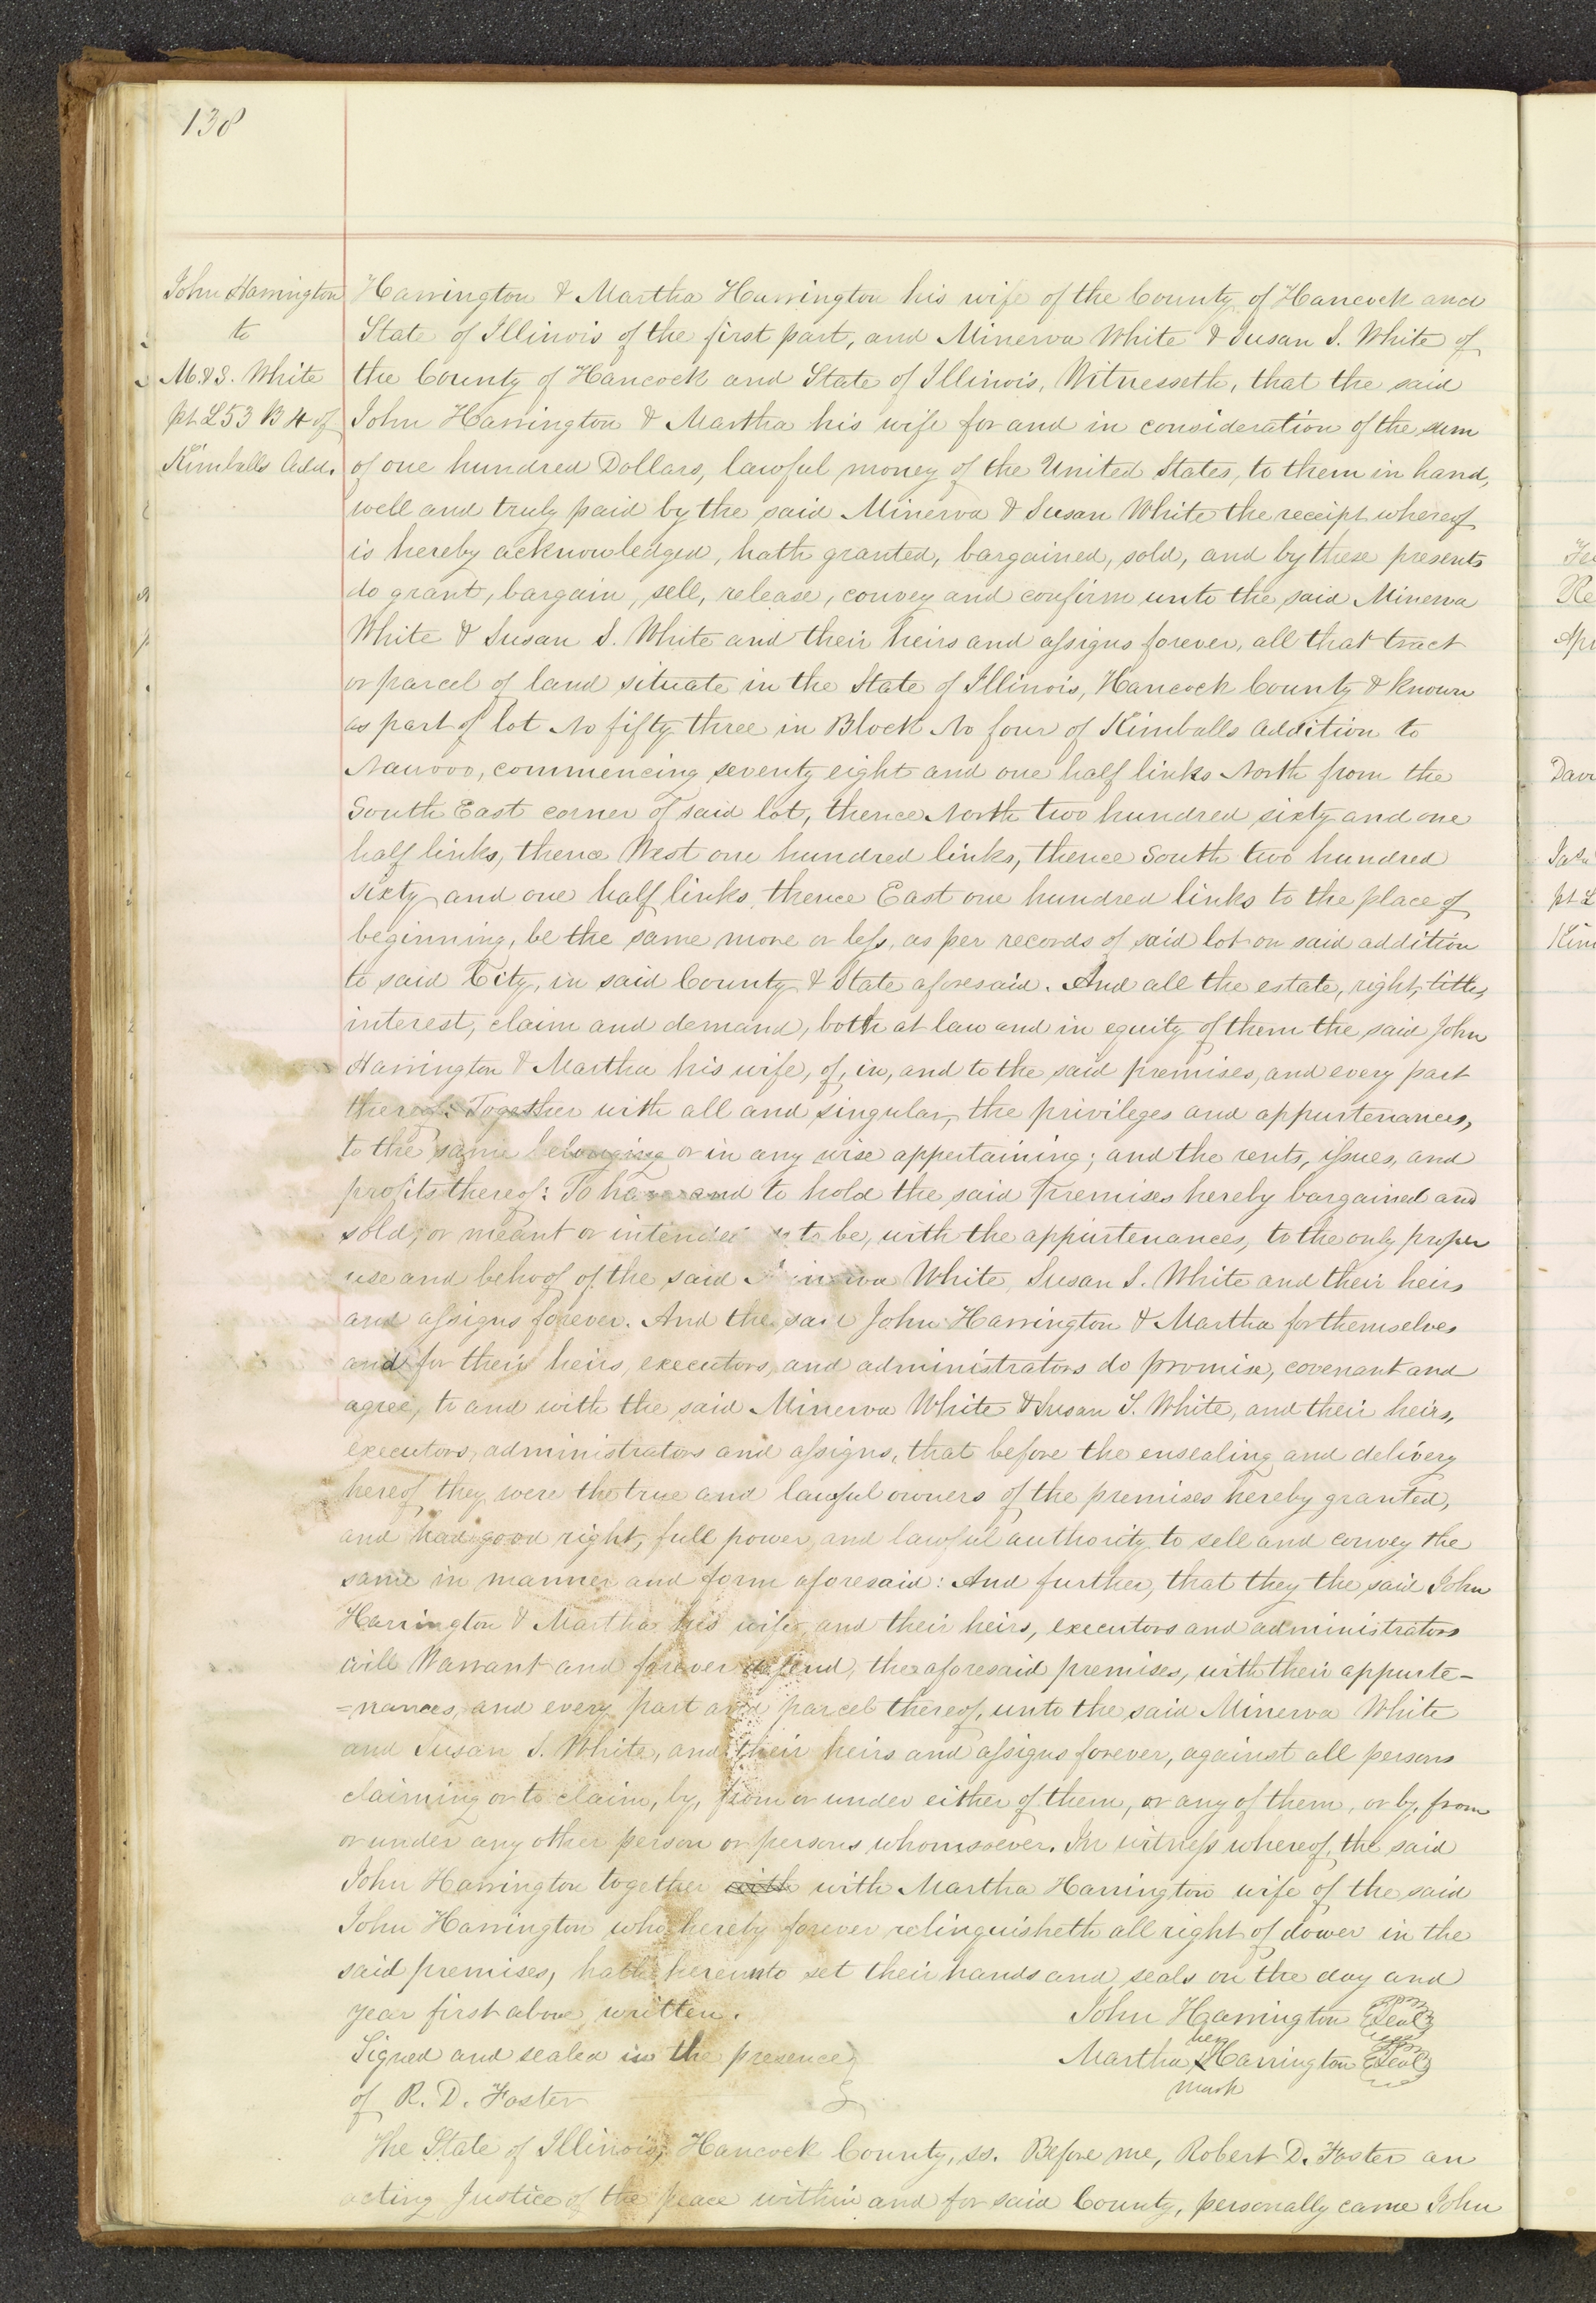 138
John Harrington
to
M. & S. White
pt L 53 B 4 of
Kimballs Add.
Harrington & Martha Harrington his wife of the County of Hancock and
State of Illinois of the first part, and Minerva White & Susan S. White of
the County of Hancock and State of Illinois, Witnesseth, that the said
John Harrington & Martha his wife for and in consideration of the sum
of one hundred Dollars, lawful money of the United States, to them in hand,
well and truly paid by the said Minerva & Susan White the receipt whereof
is hereby acknowledged, hath granted, bargained, sold, and by these presents
do grant, bargain, sell, release, convey and confirm unto the said Minerva
White & Susan S. White and their heirs and assigns forever, all that tract
or parcel of land situate in the State of Illinois, Hancock County & known
as part of lot No fifty three in Block No four of Kimballs Addition to
Nauvoo, commencing seventy eight and one half links North from the
South East corner of said lot, thence North two hundred sixty and one
half links, thence West one hundred links, thence South two hundred
sixty and one half links, thence East one hundred links to the place of
beginning, be the same more or less, as per records of said lot on said addition
to said City, in said County & State aforesaid. And all the estate, right, title,
interest, claim and demand, both at law and in equity of them the said John
Harrington & Martha his wife, of, in, and to the said premises, and every part
thereof: Together with all and singular, the privileges and appurtenances,
to the same belonging or in any wise appertaining; and the rents, issues, and
profits thereof: To have and to hold the said premises hereby bargained and
sold, or meant or intended so to be, with the appurtenances, to the only proper
use and behoof of the said Minerva White, Susan S. White and their heirs
and assigns forever. And the said John Harrington & Martha for themselves
and for their heirs, executors, and administrators do promise, covenant and
agree, to and with the said Minerva White & Susan S. White, and their heirs,
executors, administrators and assigns, that before the ensealing and delivery
hereof they were the true and lawful owners of the premises hereby granted,
and had good right, full power, and lawful authority to sell and convey the
same in manner and form aforesaid: And further, that they the said John
Harrington & Martha his wife, and their heirs, executors and administrators
will Warrant and forever defend, the aforesaid premises, with their appurte-
=nances, and every part and parcel thereof, unto the said Minerva White
and Susan S. White, and their heirs and assigns forever, against all persons
claiming or to claim, by, from or under either of them, or any of them, or by, from
or under any other person or persons whomsoever. In witness whereof, the said
John Harrington together with with Martha Harrington wife of the said
John Harrington who hereby forever relinquisheth all right of dower in the
said premises, hath hereunto set their hands and seals on the day and
year first above written. John Harrington Seal
Signed and sealed in the presence Martha X Harrington Seal
her
mark
of R. D. Foster
The State of Illinois, Hancock County, ss. Before me, Robert D. Foster an
acting Justice of the peace within and for said County, personally came John